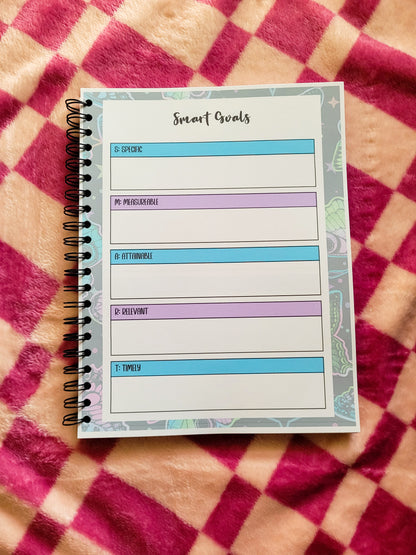 Smart Goals
S: SPECIFIC
M: MEASUREABLE
A: ATTAINABLE
R: RELEVANT
T: TIMELY